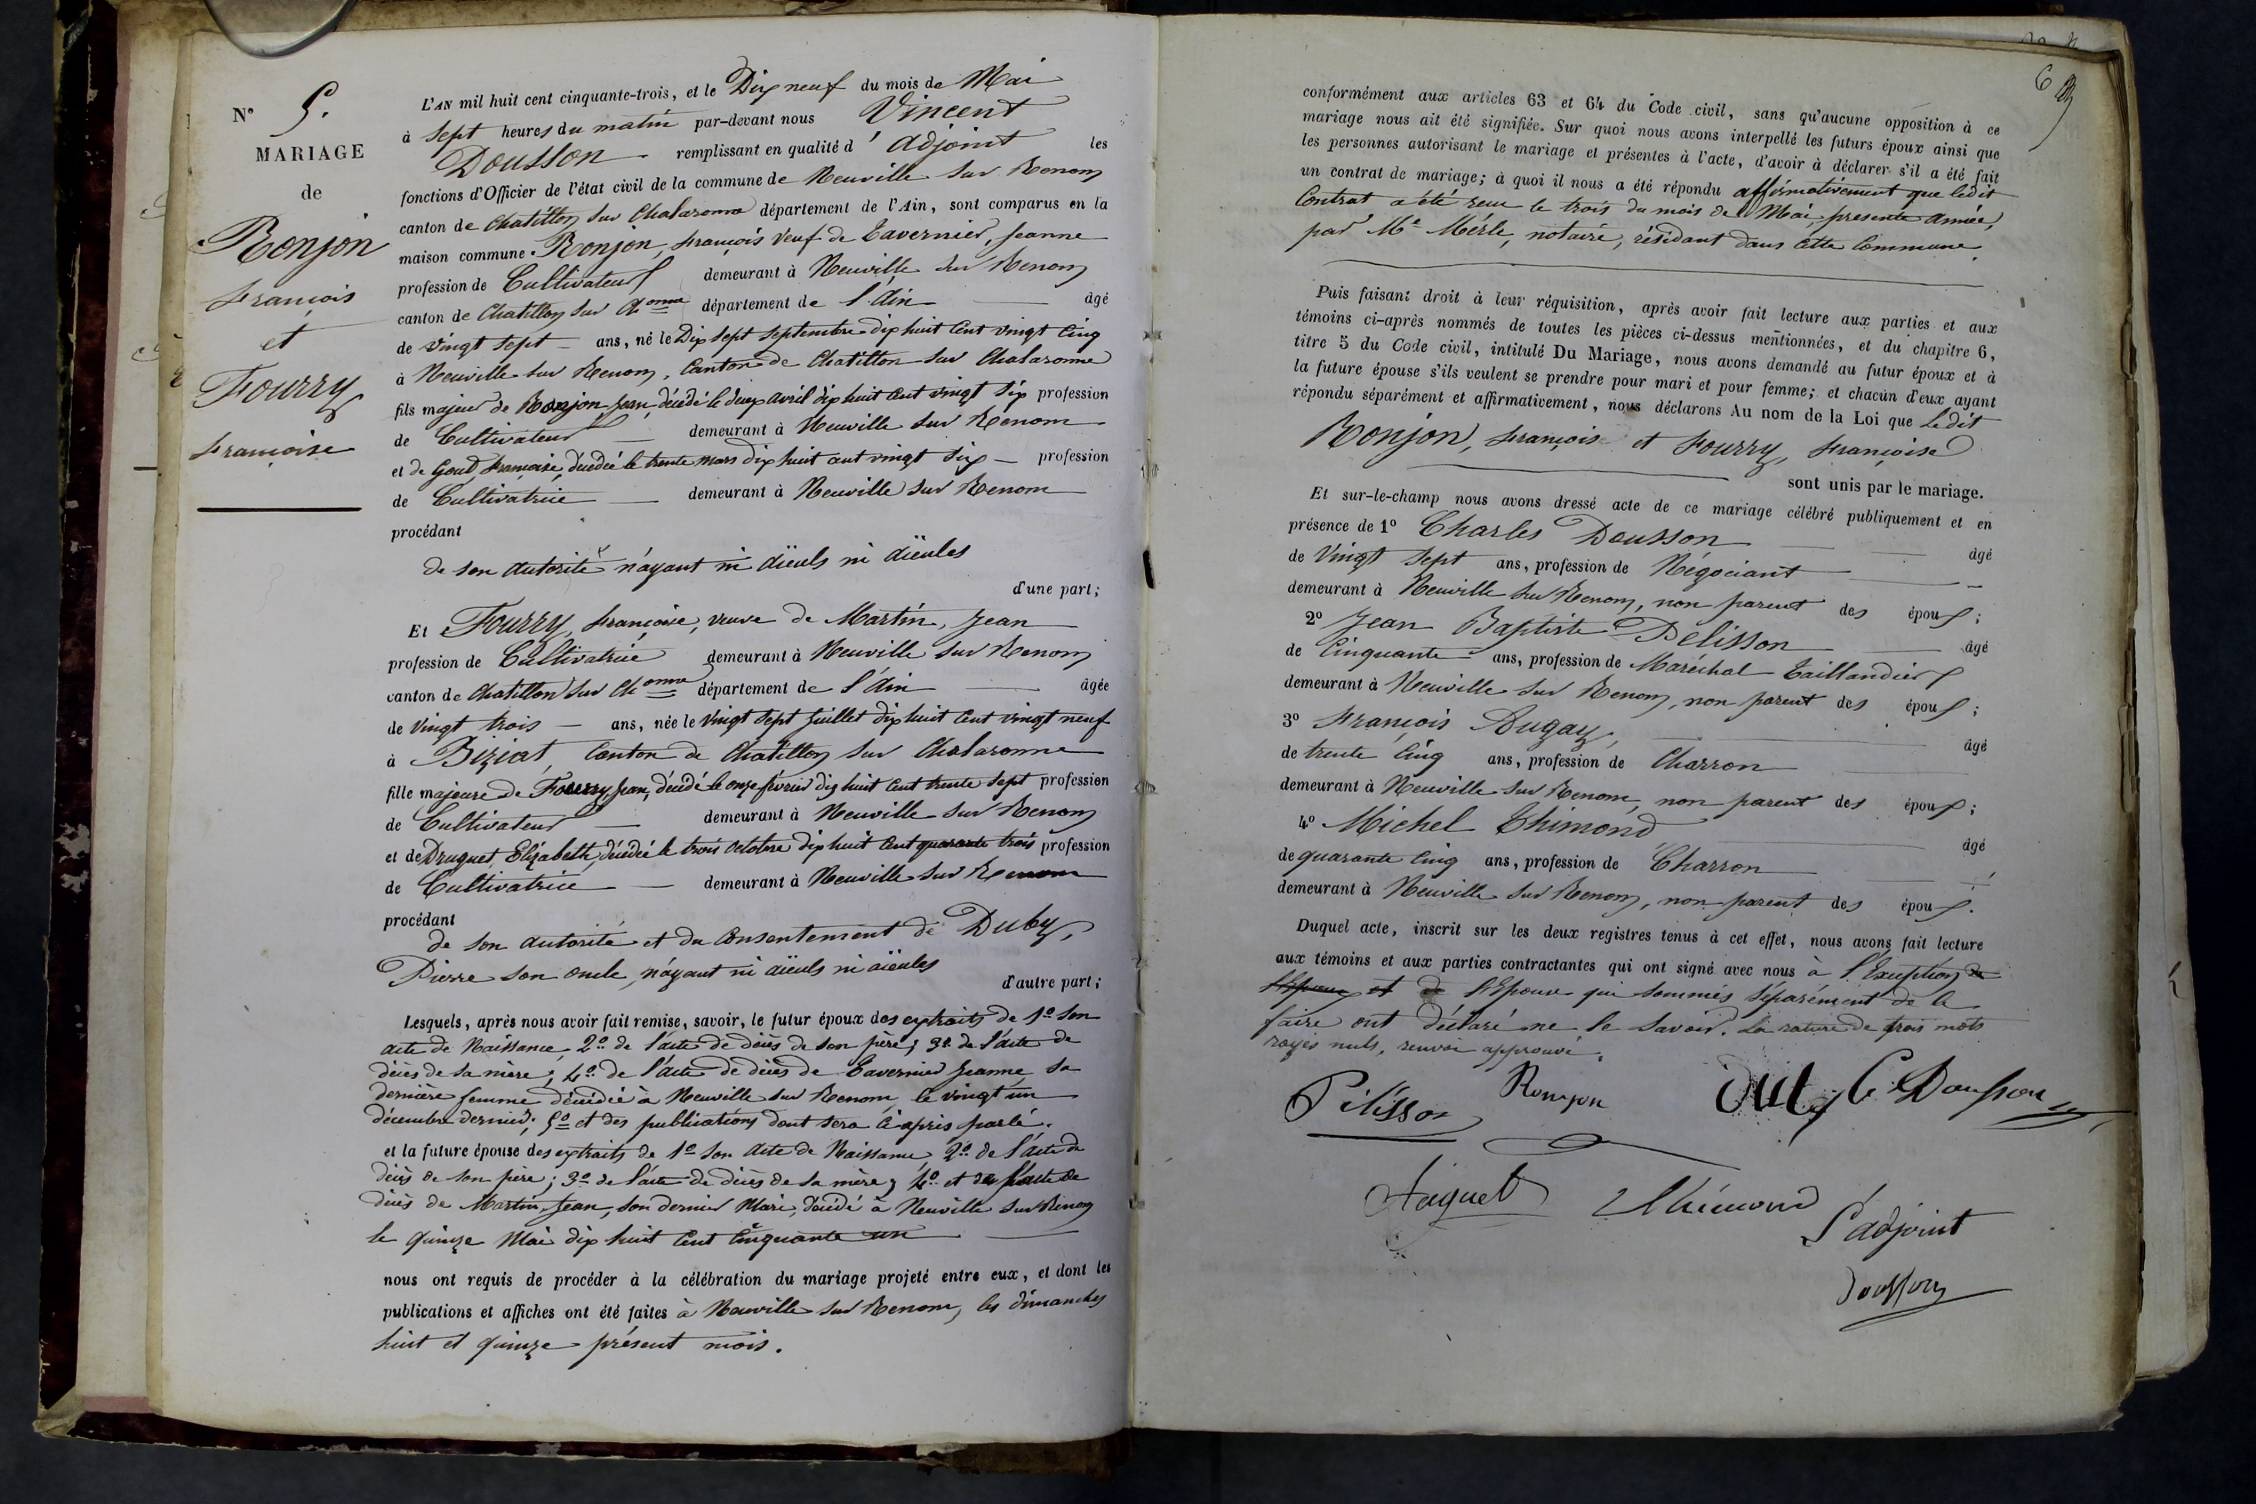 N° 5.
MARIAGE
de
Ronjon
François
et
Fourry
Françoise
L'AN mil huit cent cinquante-trois, et le Dix neuf du mois de Mai
à Sept heures du matin par-devant nous Vincent
Dousson remplissant en qualité d'adjoint les
fonctions d'Officier de l'état civil de la commune de Neuville sur Renom
canton de Chatillon sur Chalaronne département de l'Ain, sont comparus en la
maison commune Ronjon, François veuf de Tavernier, Jeanne
profession de Cultivateur demeurant à Neuville sur Renom
canton de Chatillon sur Ch onne département de l'Ain âgé
de vingt sept ans, né le Dix sept septembre dix huit cent vingt cinq
à Neuville sur Renom, Canton de Chatillon sur Chalaronne
fils majeur de Ronjon Jean, décédé le deux avril dix huit cent vingt six profession
de Cultivateur demeurant à Neuville sur Renom
et de Goud, Françoise, décédée le trente mars dix huit cent vingt six profession
de Cultivatrice demeurant à Neuville sur Renom
procédant
de son autorité n'ayant ni aïeuls ni aïeules
d'une part;
Et Fourry, Françoise, veuve de Martin, Jean
profession de Cultivatrice demeurant à Neuville sur Renom
canton de Chatillon sur Ch onne département de l'Ain âgée
de vingt trois ans, née le vingt sept Juillet dix huit cent vingt neuf
à Biziat, Canton de Chatillon sur Chalaronne
fille majeure de Fourry, Jean, décédé le onze février dix huit cent trente sept profession
de Cultivateur demeurant à Neuville sur Renom
et de Druguet, Elizabeth, décédée le trois octobre dix huit cent quarante trois profession
de Cultivatrice demeurant à Neuville sur Renom
procédant
de son autorité et du consentement de Duby,
Pierre son oncle, n'ayant ni aïeuls ni aïeules
d'autre part;
Lesquels, après nous avoir fait remise, savoir, le futur époux des extraits de 1° son
acte de Naissance, 2° de l'acte de décès de son père; 3° de l'acte de
décès de sa mère; 4° de l'acte de décès de Tavernier Jeanne, sa
dernière femme décédée à Neuville sur Renom, le vingt un
décembre dernier; 5° et des publications dont sera ci-après parlé.
et la future épouse des extraits de 1° son acte de Naissance, 2° de l'acte de
décès de son père; 3° de l'acte de décès de sa mère; 4° et de l'acte de
décès de Martin Jean, son dernier Mari, décédé à Neuville sur Renom
le quinze Mai dix huit cent cinquante un
nous ont requis de procéder à la célébration du mariage projeté entre eux, et dont les
publications et affiches ont été faites à Neuville sur Renom, les dimanches
huit et quinze présent mois.
6
conformément aux articles 63 et 64 du Code civil, sans qu'aucune opposition à ce
mariage nous ait été signifiée. Sur quoi nous avons interpellé les futurs époux ainsi que
les personnes autorisant le mariage et présentes à l'acte, d'avoir à déclarer s'il a été fait
un contrat de mariage; à quoi il nous a été répondu affirmativement que ledit
Contrat a été reçu le trois du mois de Mai, presente Année,
par Me Mérle, notaire, résidant dans cette Commune.
Puis faisant droit à leur réquisition, après avoir fait lecture aux parties et aux
témoins ci-après nommés de toutes les pièces ci-dessus mentionnées, et du chapitre 6,
titre 5 du Code civil, intitulé Du Mariage, nous avons demandé au futur époux et à
la future épouse s'ils veulent se prendre pour mari et pour femme; et chacun d'eux ayant
répondu séparément et affirmativement, nous déclarons Au nom de la Loi que Ledit
Ronjon, François et Fourry, Françoise
sont unis par le mariage.
Et sur-le-champ nous avons dressé acte de ce mariage célébré publiquement et en
présence de 1° Charles Dousson âgé
de Vingt Sept ans, profession de Négociant
demeurant à Neuville sur Renom, non parent des époux;
2° Jean Baptiste Pélisson âgé
de Cinquante ans, profession de Maréchal Taillandier
demeurant à Neuville sur Renom, non parent des époux;
3° François Augay, âgé
de trente Cinq ans, profession de Charron
demeurant à Neuville sur Renom, non parent des époux;
4° Michel Thimond âgé
de quarante Cinq ans, profession de Charron
demeurant à Neuville sur Renom, non parent des époux.
Duquel acte, inscrit sur les deux registres tenus à cet effet, nous avons fait lecture
aux témoins et aux parties contractantes qui ont signé avec nous à l'Exception de
l'époux et de l'Epouse qui sommés séparément de le
faire ont déclaré ne le savoir. La rature de trois mots
rayés nuls, renvoi approuvé.
Pélisson Ronjon Duby C. Dousson
Thimond
L'adjoint
Dousson